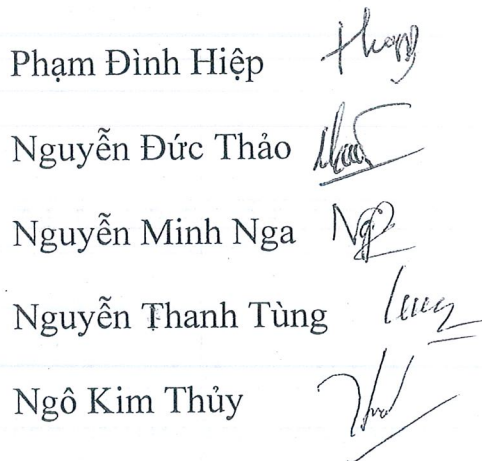 Phạm Đình Hiệp
Nguyễn Đức Thảo
Nguyễn Minh Nga
Nguyễn Thanh Tùng
Ngô Kim Thủy